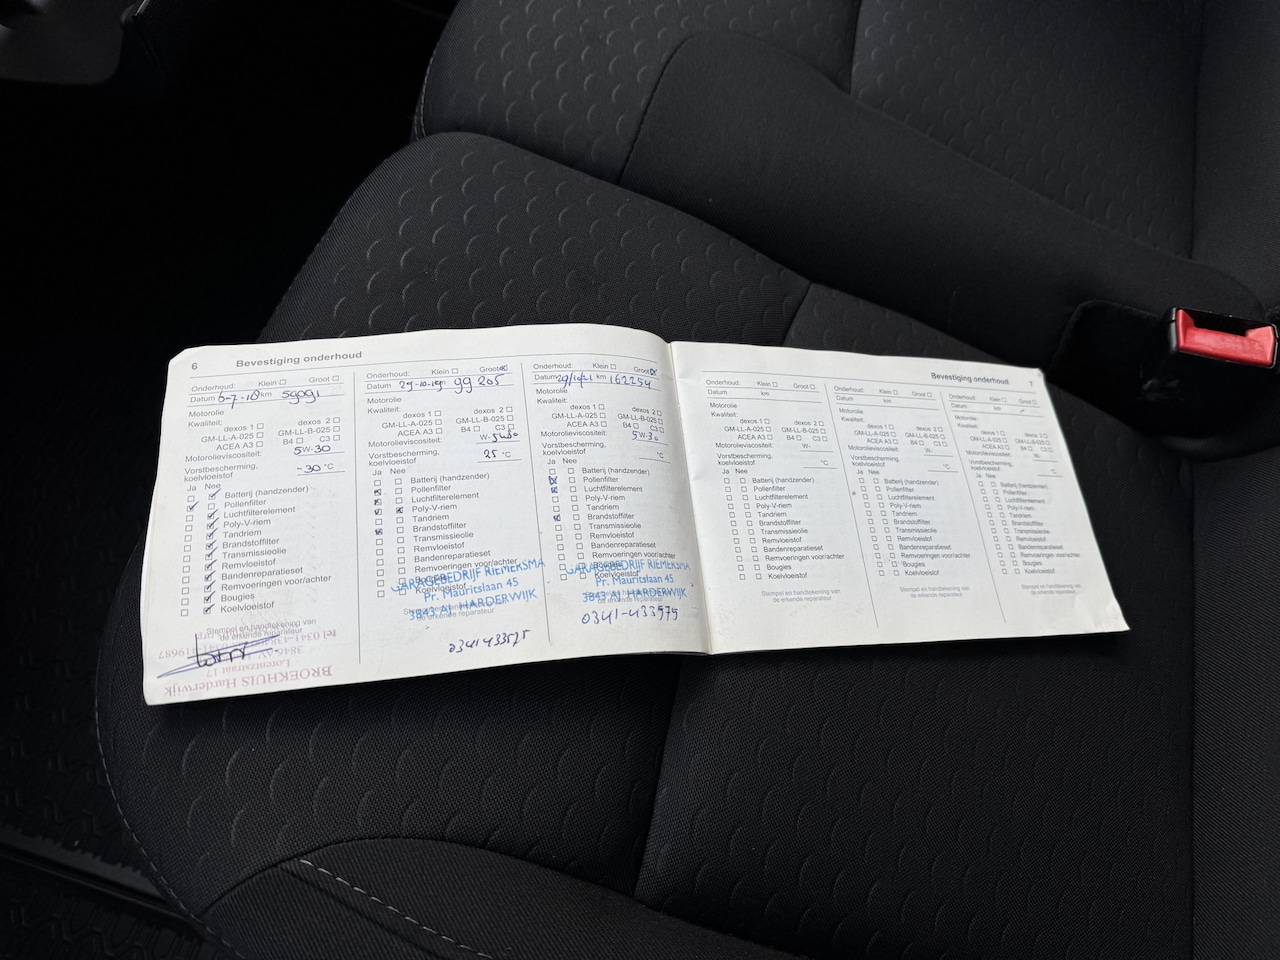 6 Bevestiging onderhoud
Onderhoud: Klein Groot
Datum 6-7-18 km 59091
Motorolie
Kwaliteit:
dexos 1 dexos 2
GM-LL-A-025 GM-LL-B-025
ACEA A3 B4 C3
Motorolieviscositeit: 5W-30
Vorstbescherming,
koelvloeistof -30 °C
Ja Nee
Batterij (handzender)
Pollenfilter
Luchtfilterelement
Poly-V-riem
Tandriem
Brandstoffilter
Transmissieolie
Remvloeistof
Bandenreparatieset
Remvoeringen voor/achter
Bougies
Koelvloeistof
Stempel en handtekening van
de erkende reparateur
BROEKHUIS Harderwijk
Lorentzstraat 17
Onderhoud: Klein Groot
Datum 29-10-19 99 205
Motorolie
Kwaliteit:
dexos 1 dexos 2
GM-LL-A-025 GM-LL-B-025
ACEA A3 B4 C3
Motorolieviscositeit: W-
Vorstbescherming,
koelvloeistof 25 °C
Ja Nee
Batterij (handzender)
Pollenfilter
Luchtfilterelement
Poly-V-riem
Tandriem
Brandstoffilter
Transmissieolie
Remvloeistof
Bandenreparatieset
Remvoeringen voor/achter
Koelvloeistof
GARAGEBEDRIJF RIEMERSMA
Pr. Mauritslaan 45
3843 AJ HARDERWIJK
de erkende reparateur
0341433575
Onderhoud: Klein Groot
Datum 29/10/21 km 162254
Motorolie
Kwaliteit:
dexos 1 dexos 2
GM-LL-A-025 GM-LL-B-025
ACEA A3 B4 C3
Motorolieviscositeit: 5W-30
Vorstbescherming,
koelvloeistof °C
Ja Nee
Batterij (handzender)
Pollenfilter
Luchtfilterelement
Poly-V-riem
Tandriem
Brandstoffilter
Transmissieolie
Remvloeistof
Bandenreparatieset
Remvoeringen voor/achter
Bougies
Koelvloeistof
GARAGEBEDRIJF RIEMERSMA
Pr. Mauritslaan 45
3843 AJ HARDERWIJK
de erkende reparateur
0341-433575
Bevestiging onderhoud 7
Onderhoud: Klein Groot
Datum km
Motorolie
Kwaliteit:
dexos 1 dexos 2
GM-LL-A-025 GM-LL-B-025
ACEA A3 B4 C3
Motorolieviscositeit: W-
Vorstbescherming,
koelvloeistof °C
Ja Nee
Batterij (handzender)
Pollenfilter
Luchtfilterelement
Poly-V-riem
Tandriem
Brandstoffilter
Transmissieolie
Remvloeistof
Bandenreparatieset
Remvoeringen voor/achter
Bougies
Koelvloeistof
Stempel en handtekening van
de erkende reparateur
Onderhoud: Klein Groot
Datum km
Motorolie
Kwaliteit:
dexos 1 dexos 2
GM-LL-A-025 GM-LL-B-025
ACEA A3 B4 C3
Motorolieviscositeit: W-
Vorstbescherming,
koelvloeistof °C
Ja Nee
Batterij (handzender)
Pollenfilter
Luchtfilterelement
Poly-V-riem
Tandriem
Brandstoffilter
Transmissieolie
Remvloeistof
Bandenreparatieset
Remvoeringen voor/achter
Bougies
Koelvloeistof
Stempel en handtekening van
de erkende reparateur
Onderhoud: Klein Groot
Datum km
Motorolie
Kwaliteit:
dexos 1 dexos 2
GM-LL-A-025 GM-LL-B-025
ACEA A3 B4 C3
Motorolieviscositeit: W-
Vorstbescherming,
koelvloeistof °C
Ja Nee
Batterij (handzender)
Pollenfilter
Luchtfilterelement
Poly-V-riem
Tandriem
Brandstoffilter
Transmissieolie
Remvloeistof
Bandenreparatieset
Remvoeringen voor/achter
Bougies
Koelvloeistof
Stempel en handtekening van
de erkende reparateur